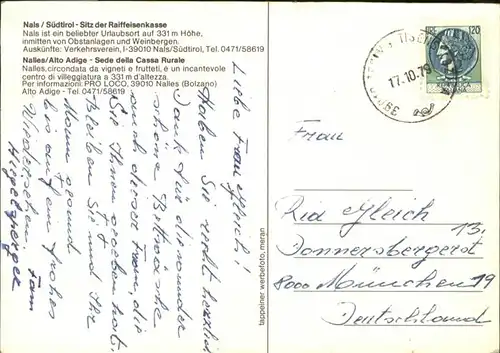 Nals / Südtirol - Sitz der Raiffeisenkasse
Nals ist ein beliebter Urlaubsort auf 331 m Höhe,
inmitten von Obstanlagen und Weinbergen.
Auskünfte: Verkehrsverein, I-39010 Nals/Südtirol, Tel. 0471/58619
Nalles/Alto Adige - Sede della Cassa Rurale
Nalles, circondata da vigneti e frutteti, è un incantevole
centro di villeggiatura a 331 m d'altezza.
Per informazioni: PRO LOCO, 39010 Nalles (Bolzano)
Alto Adige - Tel. 0471/58619
Liebe Frau Gleich!
Haben Sie recht herzlich
Dank für die
schöne Bettwäsche
auch dieser Frau, die
Sie Ihnen gegeben hat.
Bleiben Sie und Ihr
Mann gesund
bis auf ein frohes
Wiedersehen
Fam
tappeiner werbefoto, meran
120
17.10.79
Frau
Ria Gleich
Donnersbergerst 13.
8000 München 19
Deutschland